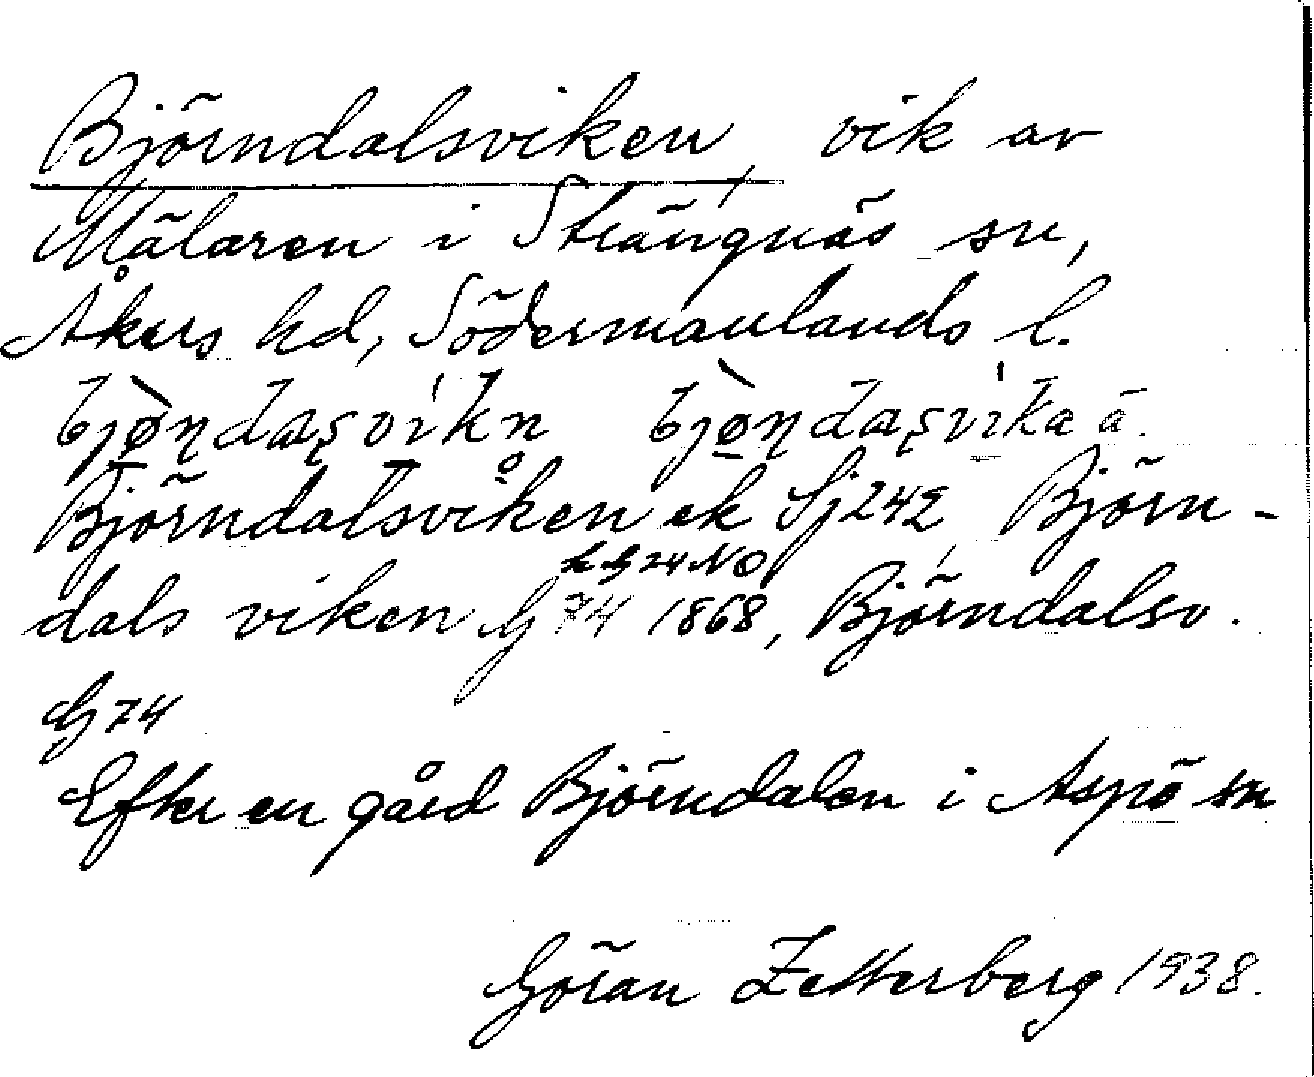 Björndalsviken, vik av
Mälaren i Strängnäs sn,
Åkers hd, Södermanlands l.
bjøn̥daʂvikn bjøn̥daʂvika ä.
Björndalsviken ek Sj 242, Björn-
G 74 NO
dals viken G 74 1868, Björndalsv.
G 74
Efter en gård Björndalen i Aspö sn
Göran Zetterberg 1938.